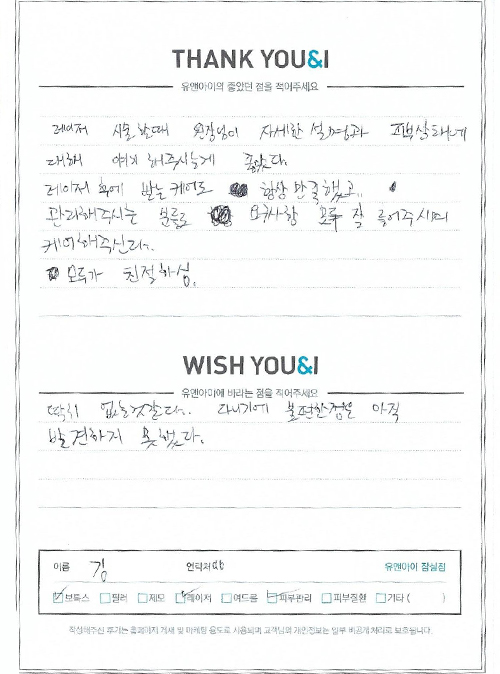 THANK YOU&I
유앤아이의 좋았던 점을 적어주세요
레이저 시술할때 원장님이 자세한 설명과 피부상태에
대해 얘기 해주시는게 좋았다.
레이저 후에 받는 케어도 항상 만족했고.
관리해주시는 분들도 요구사항 모두 잘 들어주시며
케어해주신다.
모두가 친절하심.
WISH YOU&I
유앤아이에 바라는 점을 적어주세요
딱히 없는것같다. 다니기에 불편한점은 아직
발견하지 못했다.
이름 김 연락처 유앤아이 잠실점
보톡스 필러 제모 레이저 여드름 피부관리 피부질환 기타 ( )
작성해주신 후기는 홈페이지 게재 및 마케팅 용도로 사용되며 고객님의 개인정보는 일부 비공개 처리로 보호됩니다.